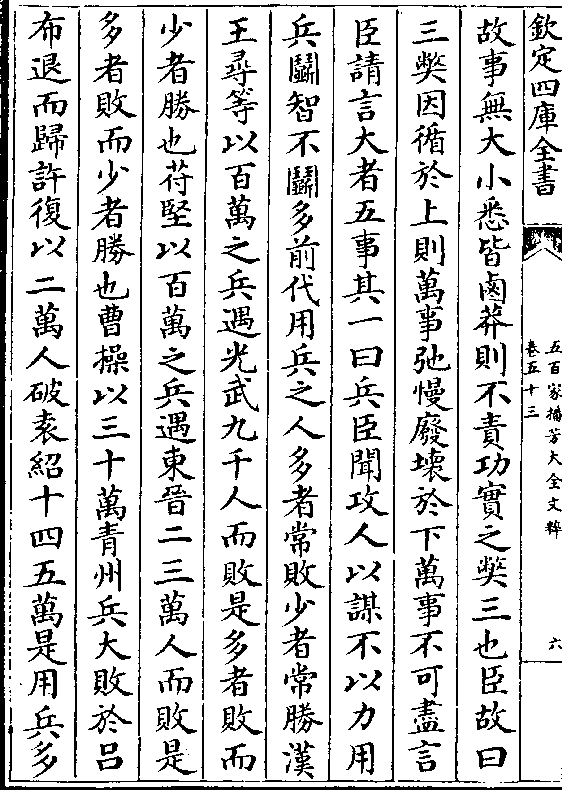 欽定四庫全書
五百家播芳大全文粹
卷五十三
六
故事無大小悉皆鹵莽則不責功實之獘三也臣故曰
三獘因循於上則萬事弛慢廢壊於下萬事不可盡言
臣請言大者五事其一曰兵臣聞攻人以謀不以力用
兵鬬智不鬬多前代用兵之人多者常敗少者常勝漢
王尋等以百萬之兵遇光武九千人而敗是多者敗而
少者勝也苻堅以百萬之兵遇東晉二三萬人而敗是
多者敗而少者勝也曹操以三十萬青州兵大敗於吕
布退而歸許復以二萬人破袁紹十四五萬是用兵多